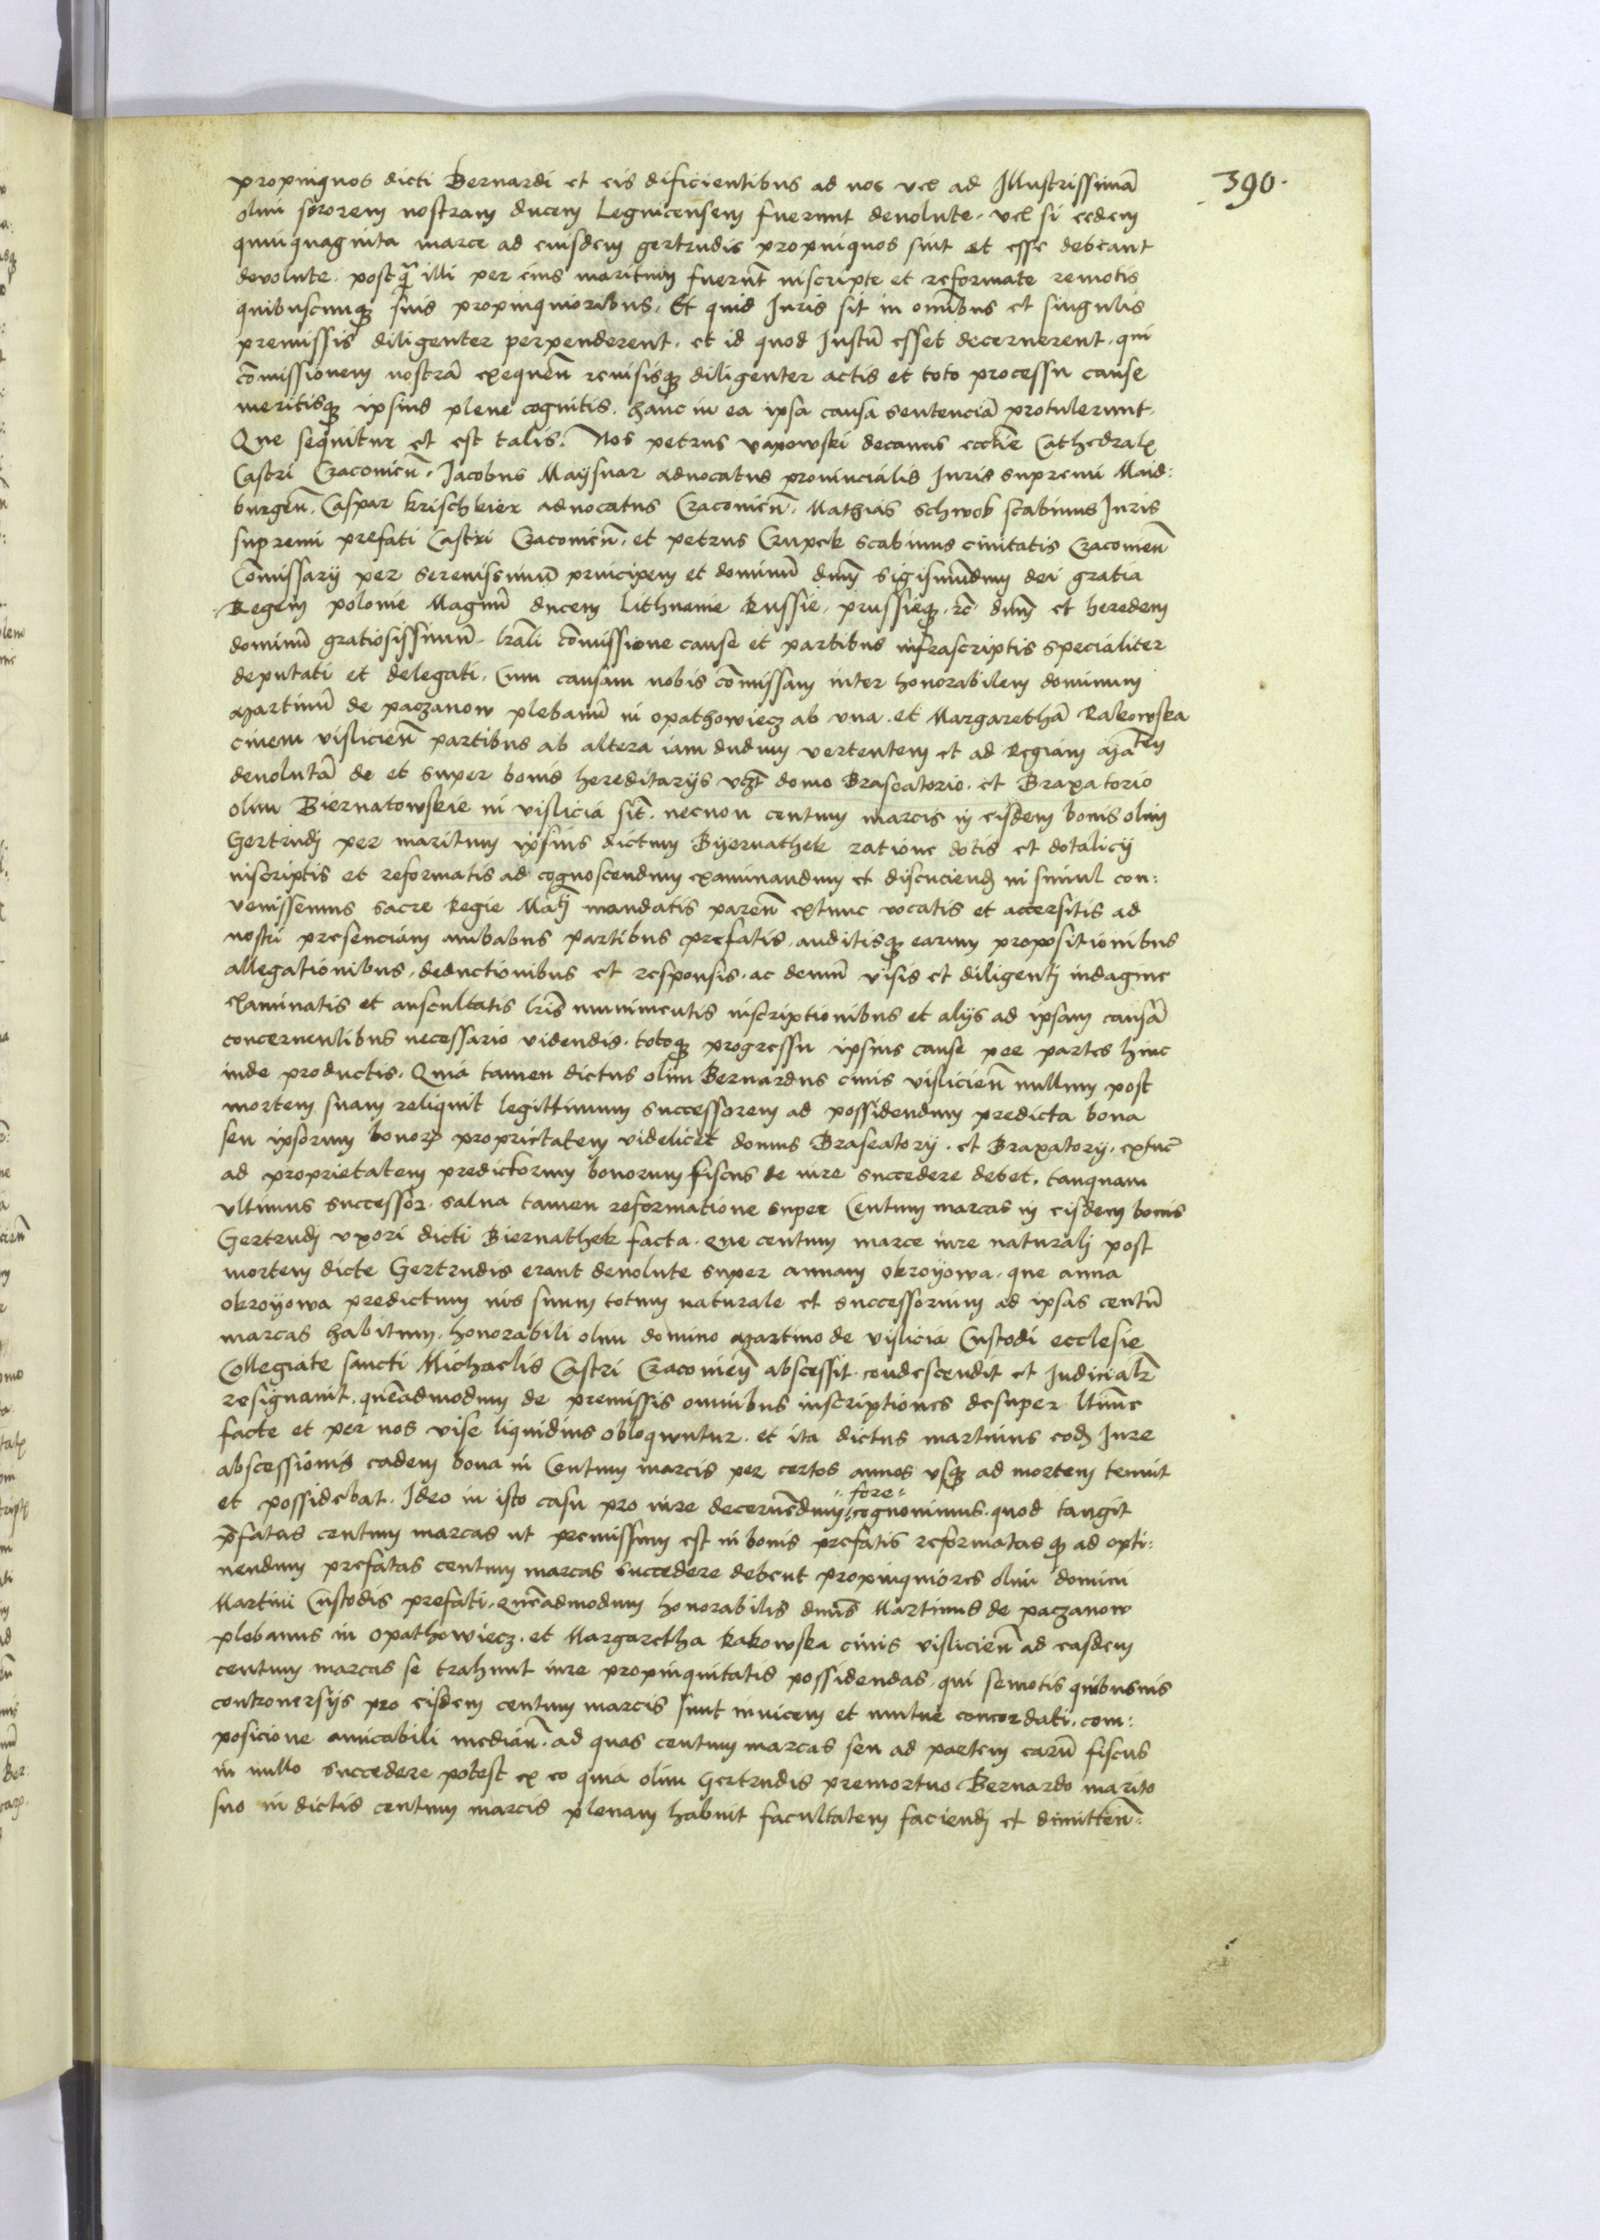 390.
propinquos dicti Bernardi et eis dificientibus ad nos vel ad Illustrissimā
olim sororem nostram ducem Legnicensem fuerunt devolute. vel si eedem
quinquaginta marce ad eiusdem gertrudis propinquos sint et esse debeant
devolute. postq̄ illi per eius maritum fuerūt inscripte et reformate remotis
quibuscunq3 suis propinquioribus. Et quid Iuris sit in oīnibus et singulis
premissis diligenter perpenderent. et id quod Iustū esset decernerent. qui
cōmissionem nostrā exequen̄ revisisq3 diligenter actis et toto processu cause
meritisq3 ipsius plene cognitis. hanc in ea ipsa causa sentenciā protulerunt.
Que sequitur et est talis. Nos petrus vapowski decanus eccl̄ie Cathedral
Castri Cracovien̄. Jacobus Maysnar advocatus provincialis Iuris supremi Maid:
burgen̄. Caspar Krischkier advocatus Cracovien̄. Mathias schwob scabinus Iuris
supremi prefati Castri Cracovien̄. et petrus Crupek scabinus civitatis Cracovien̄
Cōmissarij per serenissimū principem et dominū dnm̄ sigismūdum dei gratia
Regem polonie Magnū ducem Lithuanie Russie. prussieq3. zc̄. dnm̄ et heredem
dominū gratiosissimū. lrāli cōmissione cause et partibus infrascriptis specialiter
deputati et delegati. Cum causam nobis cōmissam inter honorabilem dominum
Martinū de paczanow plebanū in opathowiecz ab una. et Margarethā Rakowska
civem vislicien̄ partibus ab altera iam dudum vertentem et ad Regiam Matem
devolutā de et super bonis hereditarijs vcz̄t domo Braseatorio. et Braxatorio
olim Biernatowskie in vislicia sit̄. necnon centum marcis in eisdem bonis olim
Gertrudj per maritum ipsius dictum Byernathek ratione dotis et dotalicij
inscriptis et reformatis ad cognoscendum examinandum et discuciend in simul con:
venissemus sacre Regie Matj mandatis paren̄ extunc vocatis et accersitis ad
nostri presenciam ambabus partibus prefatis. auditisq3 earum propositionibus
allegationibus. deductionibus et responsis. ac demū visis et diligentj indagine
examinatis et auscultatis lrīs munimentis inscriptionibus et alijs ad ipsam causā
concernentibus necessario videndis. totoq3 progressu ipsius cause per partes hinc
inde productis. Quia tamen dictus olim Bernardus civis vislicien̄ nullum post
mortem suam reliquit legittimum successorem ad possidendum predicta bona
seu ipsorum bonor proprietatem videlicet domus Braseatorij. et Braxatorij. extūc
ad proprietatem predictorum bonorum fiscus de iure succedere debet. tanquam
ultimus successor. salva tamen reformatione super Centum marcas in eisdem bonis
Gertrudj uxori dicti Biernathek facta. que centum marce iure naturalj post
mortem dicte Gertrudis erant devolute super annam okroyowa. que anna
okroyowa predictum ius suum totum naturale et successorium ad ipsas centū
marcas habitum. honorabili olim domino Martino de vislicia Custodi ecclesie
Collegiate sancti Michaelis Castri Cracovien̄ abscessit. condescendit et Judicialr̄
resignavit. quēadmodum de premissis omnibus inscriptiones desuper ltīme
facte et per nos vise liquidius obloquuntur. et ita dictus martinus eod Iure
abscessionis eadem bona in Centum marcis per certos annos usq3 ad mortem tenuit
et possidebat. Ideo in isto casu pro iure decernēdum "fore" cognovimus. quod tangit
p̄fatas centum marcas ut premissum est in bonis prefatis reformatas q3 ad opti:
nendum prefatas centum marcas succedere debent propinquiores olim domini
Martini Custodis prefati. quēadmodum honorabilis dnūs Martinus de paczanow
plebanus in opathowiecz. et Margaretha Rakowska civis vislicien̄ ad easdem
centum marcas se trahunt iure propinquitatis possidendas. qui semotis quibusvis
controversijs pro eisdem centum marcis sunt invicem et mutue concordati. com:
posicione amicabili median̄. ad quas centum marcas seu ad partem earū fiscus
in nullo succedere potest ex eo quia olim Gertrudis premortuo Bernardo marito
suo in dictis centum marcis plenam habuit facultatem faciendj et dimitten̄: